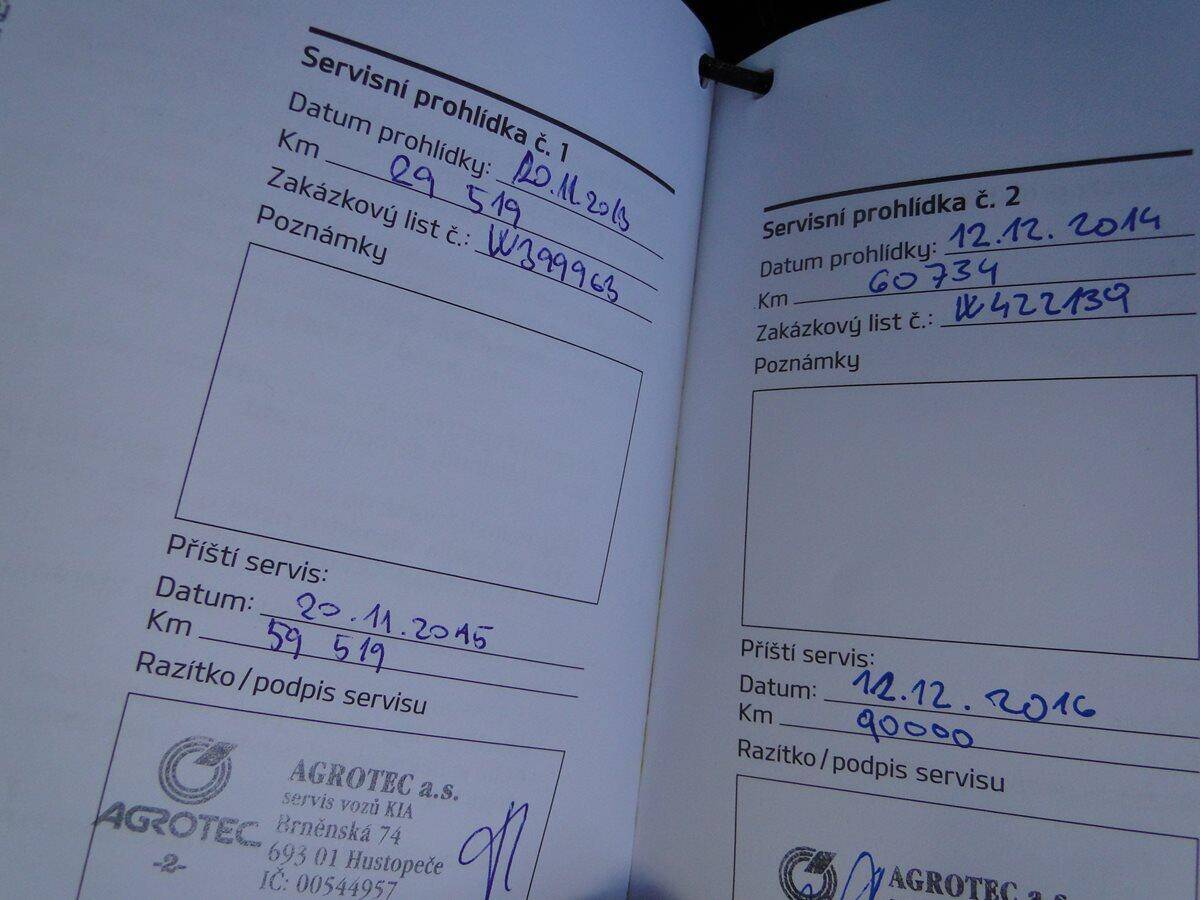 Servisní prohlídka č. 1
Datum prohlídky: 20.11.2013
Km 29 519
Zakázkový list č.: W399963
Poznámky
Příští servis:
Datum: 20.11.2015
Km 59 519
Razítko/podpis servisu
AGROTEC
-2-
AGROTEC a.s.
servis vozů KIA
Brněnská 74
693 01 Hustopeče
IČ: 00544957
Servisní prohlídka č. 2
Datum prohlídky: 12.12.2014
Km 60734
Zakázkový list č.: W422139
Poznámky
Příští servis:
Datum: 12.12.2016
Km 90000
Razítko/podpis servisu
AGROTEC a.s.